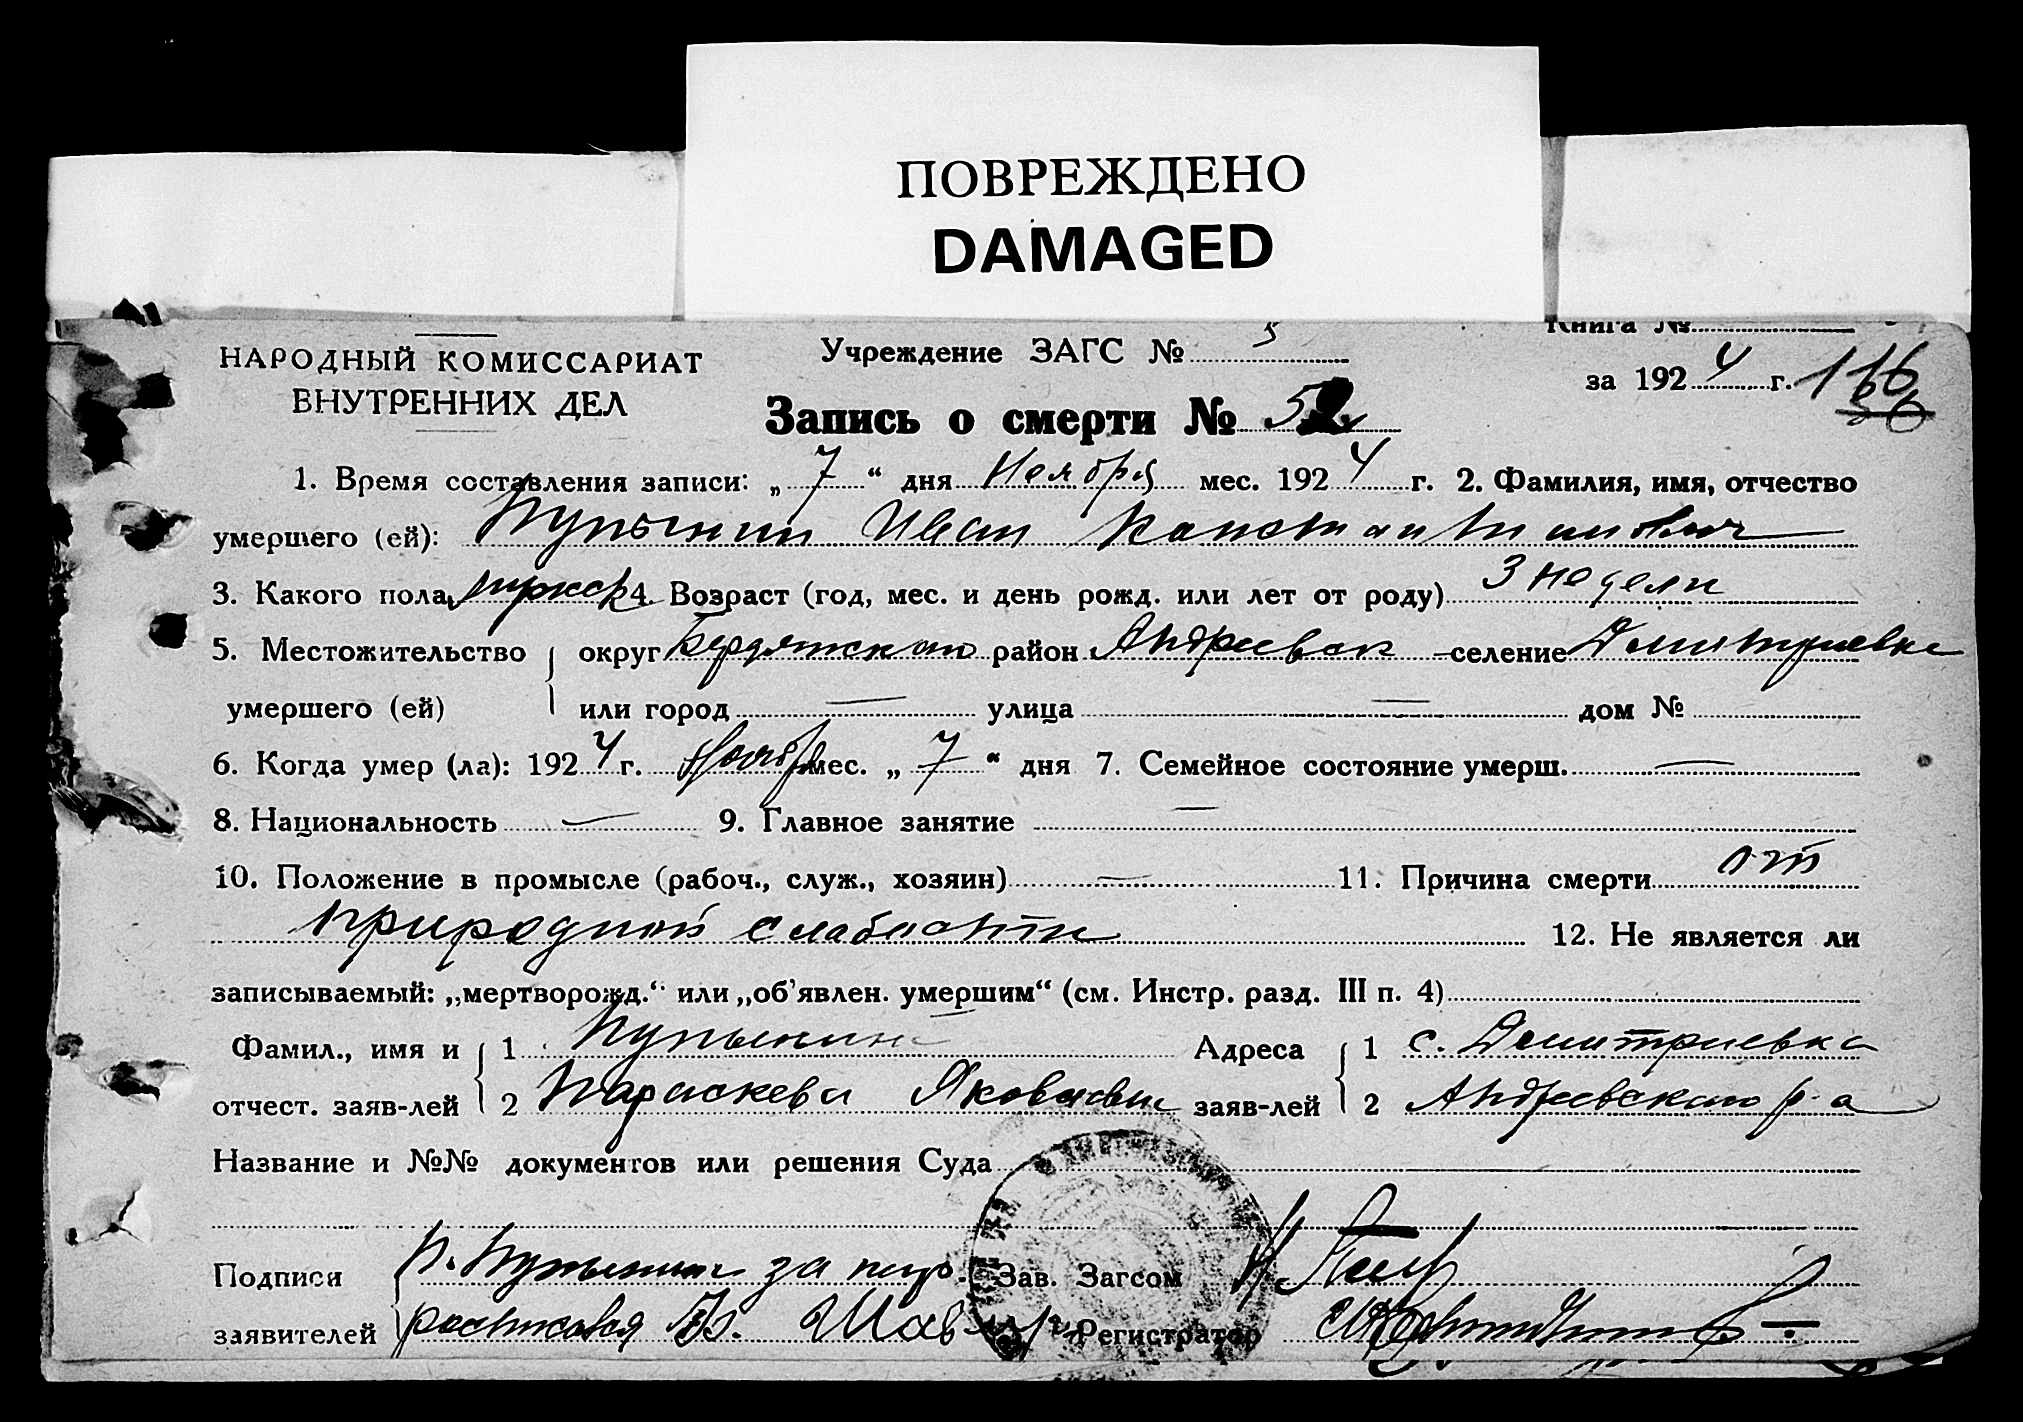 ПОВРЕЖДЕНО
DAMAGED
Книга №
НАРОДНЫЙ КОМИССАРИАТ
ВНУТРЕННИХ ДЕЛ
Учреждение ЗАГС № 5
за 1924 г. 116
56
Запись о смерти № 52
1. Время составления записи: „7“ дня Ноября мес. 1924 г. 2. Фамилия, имя, отчество
умершего (ей): Пупынин Иван Констант
3. Какого пола, мужск 4. Возраст (год, мес. и день рожд. или лет от роду) 3 недели
5. Местожительство округ Бердянский район Андреевск – селение Дмитриевка
умершего (ей) или город — улица — дом №
6. Когда умер (ла): 1924 г. Ноябр мес. „7“ дня 7. Семейное состояние умерш. —
8. Национальность — 9. Главное занятие —
10. Положение в промысле (рабоч., служ., хозяин) — 11. Причина смерти от
природной слабости 12. Не является ли
записываемый: „мертворожд.“ или „об'явлен. умершим“ (см. Инстр. разд. III п. 4)
Фамил., имя и 1 Пупынина Адреса 1 с. Дмитриевка
отчест. заяв-лей 2 Параскева Яковлевна заяв-лей 2 Андреевского р-а
Название и №№ документов или решения Суда
Подписи П. Пупынина за негр. Зав. Загсом
заявителей расписался Регистратор